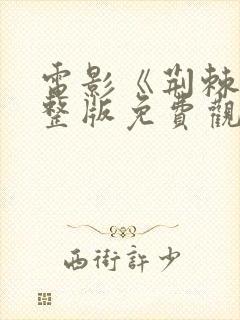 電影《荆棘
整版免費觀
西街許少